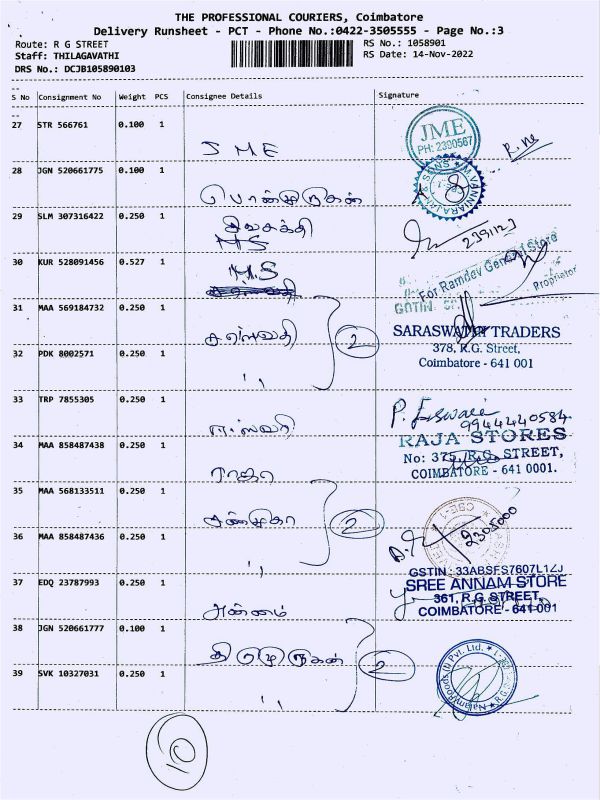 THE PROFESSIONAL COURIERS, Coimbatore
Delivery Runsheet - PCT - Phone No.:0422-3505555 - Page No.:3
Route: R G STREET
RS No.: 1058901
Staff: THILAGAVATHI
RS Date: 14-Nov-2022
DRS No.: DCJB105890103
S No Consignment No Weight PCS Consignee Details Signature
27 STR 566761 0.100 1
JME
JME
PH: 2390567
28 JGN 520661775 0.100 1
பொன்முருகன்
29 SLM 307316422 0.250 1
சிவசக்தி
MS
30 KUR 528091456 0.527 1
M.S
For Ramdev General Store
Proprietor
31 MAA 569184732 0.250 1
சரஸ்வதி
2
SARASWATHI TRADERS
378, R.G. Street,
Coimbatore - 641 001
32 PDK 8002571 0.250 1
,,
33 TRP 7855305 0.250 1
ஈஸ்வரி
P. Eswari
9944440584
34 MAA 858487438 0.250 1
ராஜா
RAJA STORES
No: 375, R.G. STREET,
COIMBATORE - 641 0001.
35 MAA 568133511 0.250 1
2
36 MAA 858487436 0.250 1
,,
2305000
37 EDQ 23787993 0.250 1
அன்னம்
GSTIN : 33ABSFS7607L1ZJ
SREE ANNAM STORE
361, R.G. STREET,
COIMBATORE - 641 001
38 JGN 520661777 0.100 1
திருமுருகன்
2
39 SVK 10327031 0.250 1
,,
10